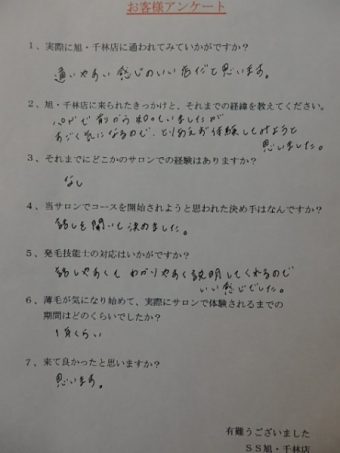 お客様アンケート
1、実際に旭・千林店に通われてみていかがですか?
通いやすい感じのいい店だと思います。
2、旭・千林店に来られたきっかけと、それまでの経緯を教えてください。
前から知っていましたが
すごく気になるので、とりあえず体験してみようと
思いました。
3、それまでにどこかのサロンでの経験はありますか?
なし
4、当サロンでコースを開始されようと思われた決め手はなんですか?
話しを聞いて決めました。
5、発毛技能士の対応はいかがですか?
話しやすくて わかりやすく説明してくれるので
いい感じでした。
6、薄毛が気になり始めて、実際にサロンで体験されるまでの
期間はどのくらいでしたか?
1年くらい
7、来て良かったと思いますか?
思います。
有難うございました
SS旭・千林店